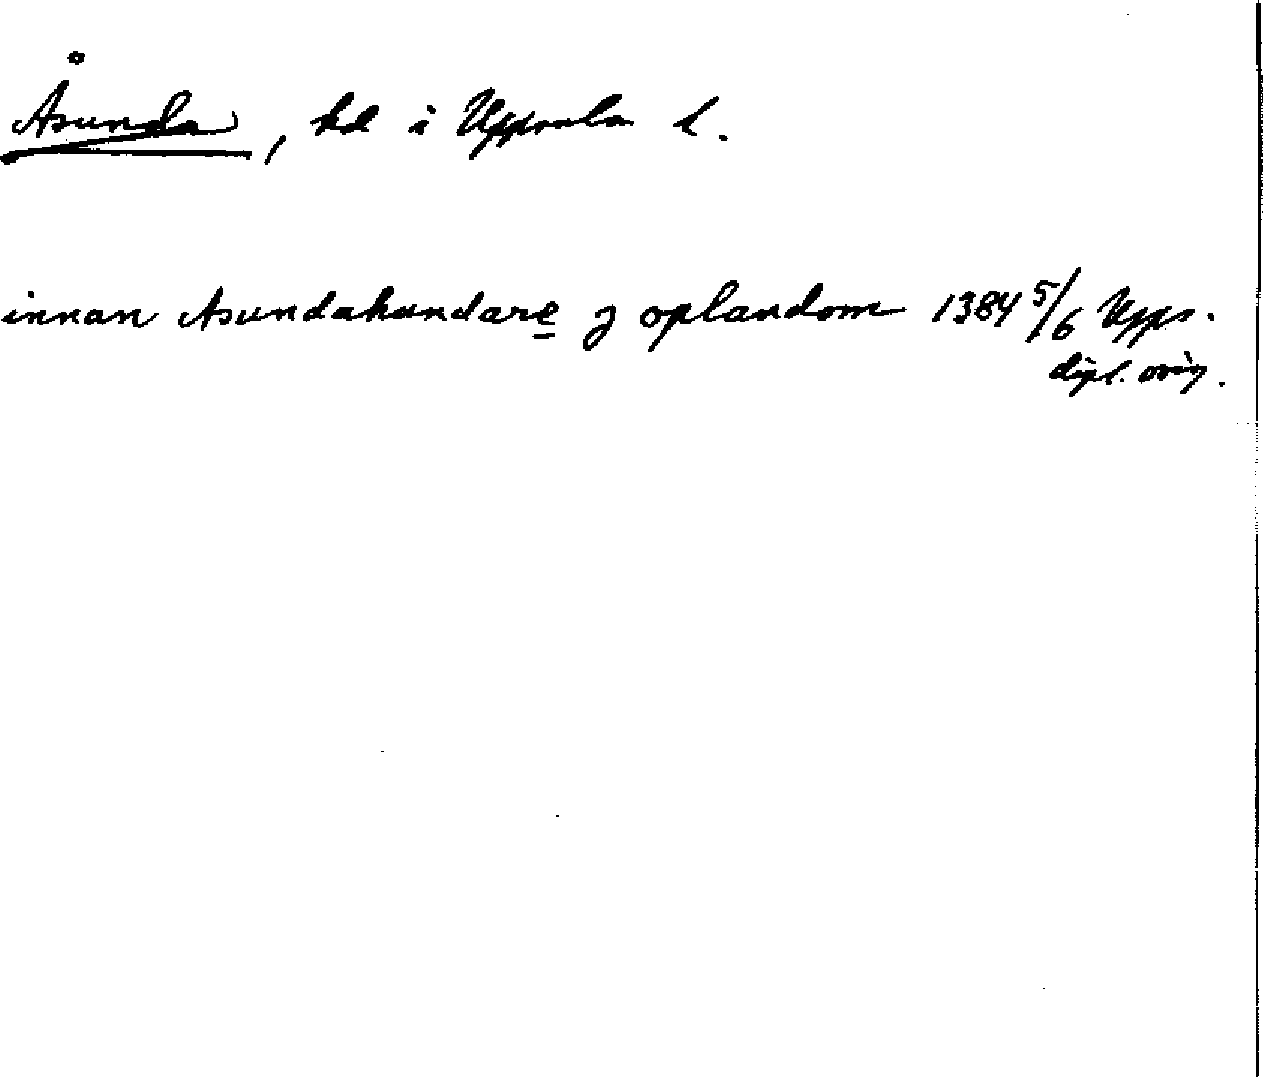 Åsunda, hd i Uppsala l.
innan Asundahundare j oplandom 1384 5/6 Upps.
dipl. orig.